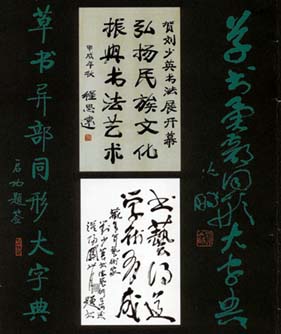 草书异部同形大字典
沈鹏
贺刘少英书法展开幕
弘扬民族文化
振興书法艺术
甲戌年秋 程思远
书藝得道
学術有成
草书异部同形大字典
启功题签